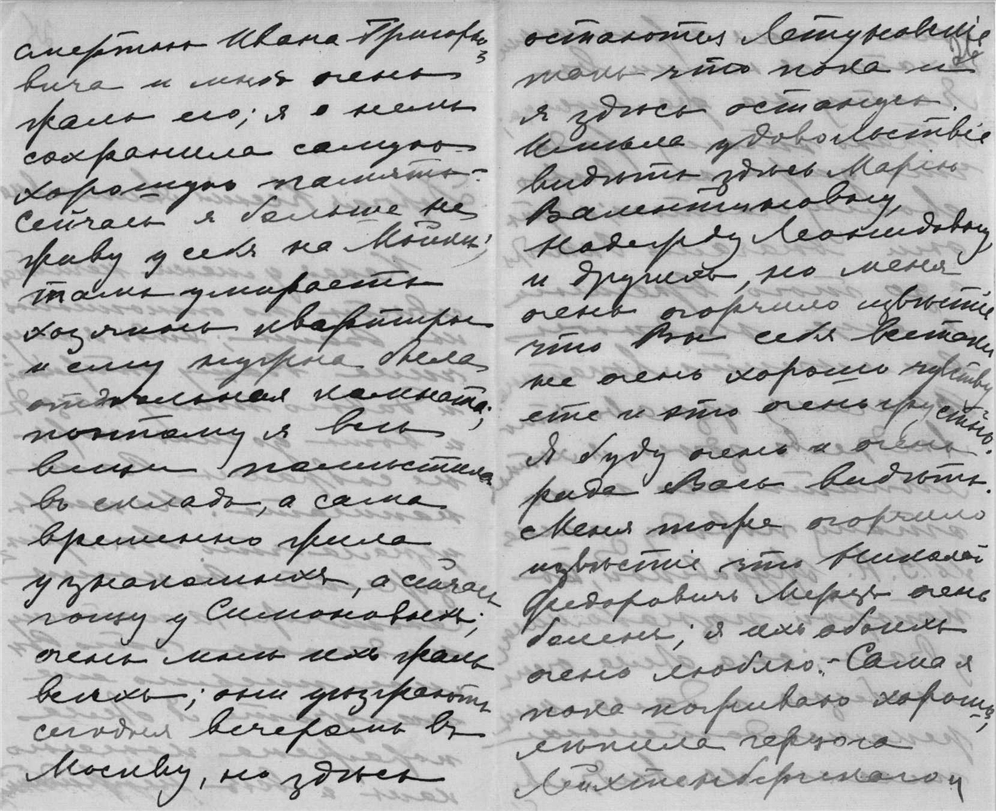 смертью Ивана Григорь-
вича и мнѣ очень
жаль его; я о немъ
сохранила самую
хорошую память.-
Сейчасъ я больше не
живу у себя на Мойкѣ;
тамъ умираетъ
хозяинъ квартиры
и ему нужна была
отдѣльная комната;
поэтому я всѣ
вещи помѣстила
въ складъ, а сама
временно жила
у знакомыхъ, а сейчасъ
гощу у Симоновыхъ;
очень мнѣ ихъ жаль
всѣхъ; они уѣзжаютъ
сегодня вечеромъ въ
Москву, но здѣсь
остаются
такъ что пока и
я здѣсь останусь.
Имѣла удовольствіе
видѣть здѣсь Марію
Валентиновну,
Надежду Леонидовну
и другихъ, но меня
очень огорчило извѣстіе
что Вы себя всетаки
не очень хорошо чувству
ете и это очень грустно.
Я буду очень и очень
рада Васъ видѣть.
Меня тоже огорчило
извѣстіе что Николай
Федоровичъ очень
боленъ; я ихъ обоихъ
очень люблю.- Сама я
пока поживаю хорошо,
лѣпила герцога
Лейхтенбергскаго и